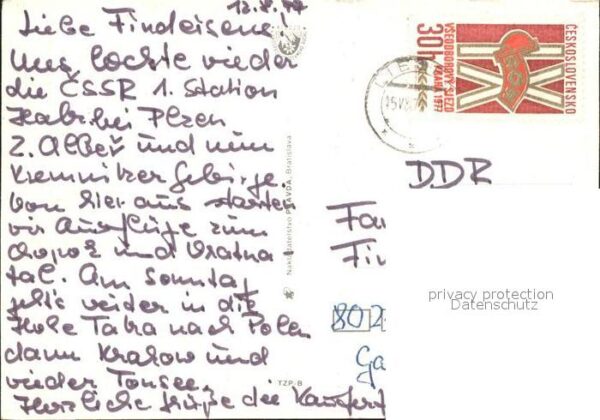 12.8.77
Liebe Findeisens!
Uns lockte wieder
die ČSSR 1. Station
Habr bei Plzen
2. und nun
Kremnitzer Gebirge.
Von hier aus starten
wir Ausflüge zum
Chopok und Vratna
tal. Am Sonntag
geht's weiter in die
Hohe Tatra nach Polen
dann Krakow und
wieder
Herzliche Grüße die
Nakladateľstvo PRAVDA, Bratislava
TZP-B
ČESKOSLOVENSKO
30h
VŠEODBOROVÝ SJEZD
PRAHA 1977
IX
ROH
DDR
Fam
Fin
802
Ga
privacy protection
Datenschutz